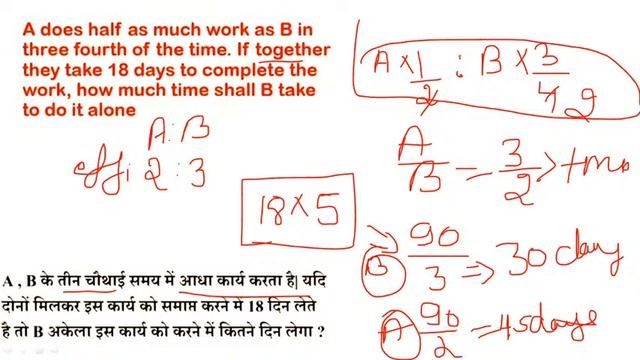 A does half as much work as B in
three fourth of the time. If together
they take 18 days to complete the
work, how much time shall B take
to do it alone
A : B
effi 2 : 3
18 × 5
A × 1/2 : B × 3/4 2
A/B = 3/2 > time
B 90/3 ⇒ 30 day
A 90/2 = 45 days
A , B के तीन चौथाई समय में आधा कार्य करता है| यदि
दोनों मिलकर इस कार्य को समाप्त करने में 18 दिन लेते
है तो B अकेला इस कार्य को करने में कितने दिन लेगा ?